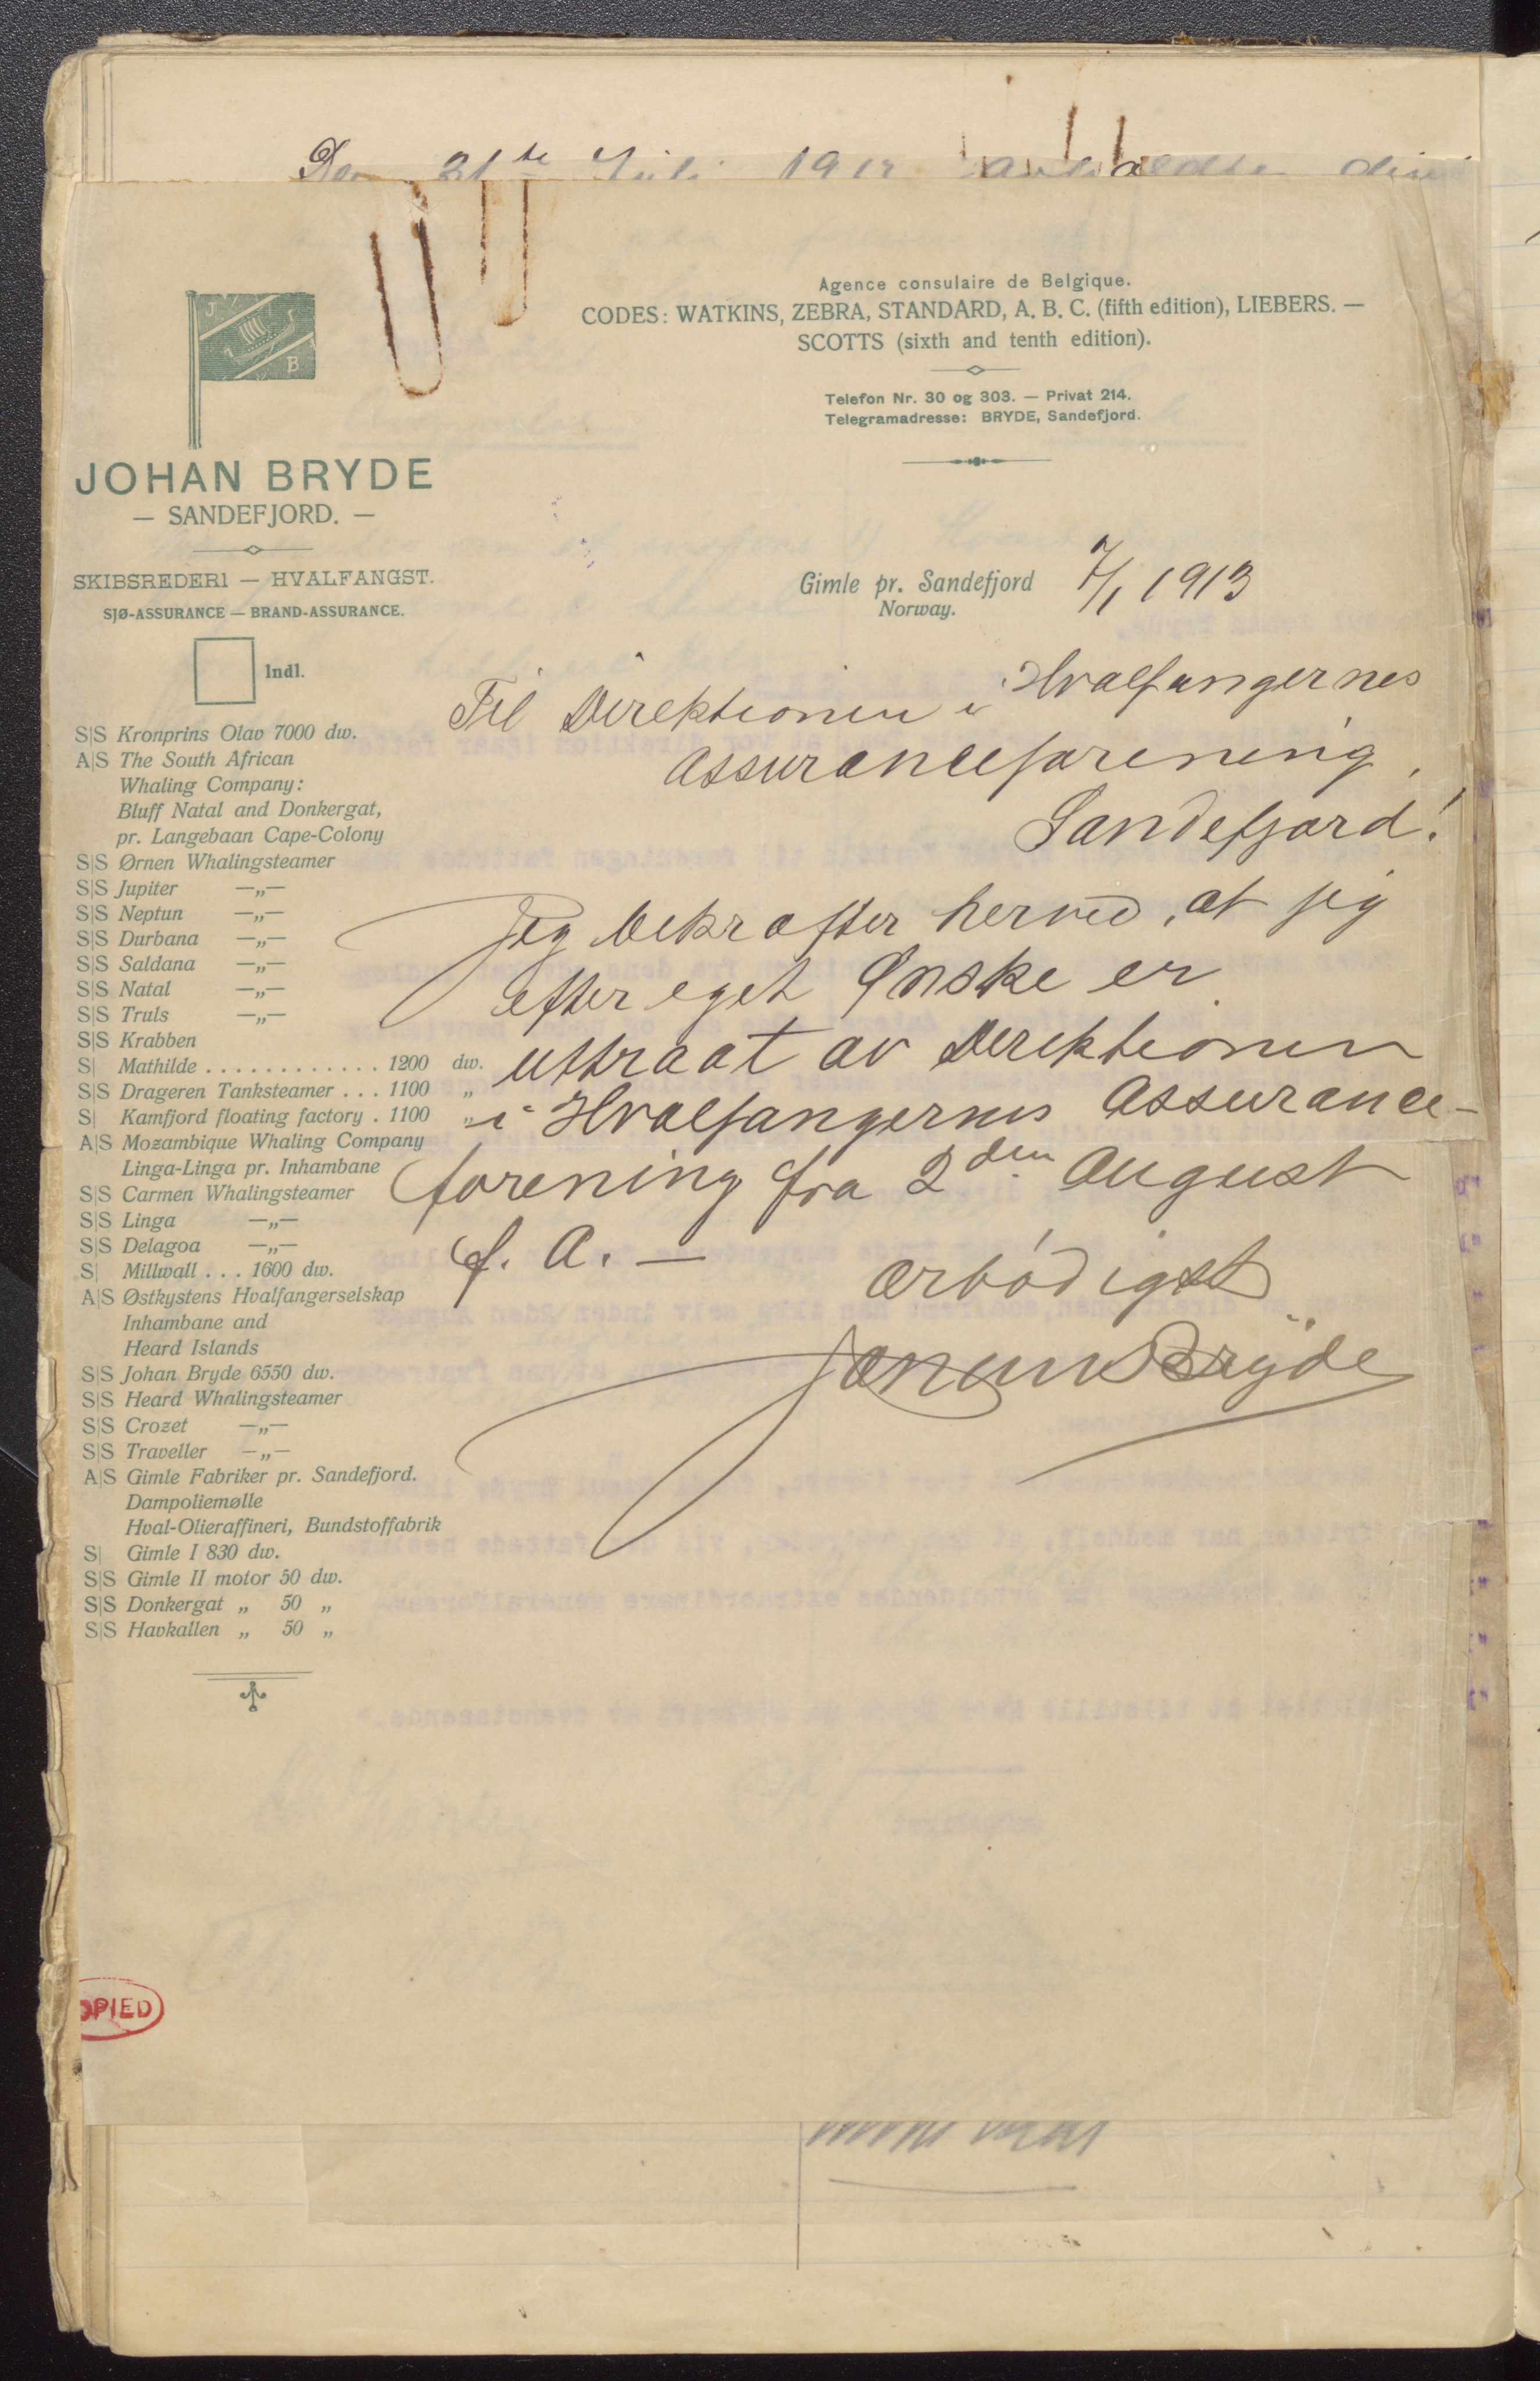 Den 31te Juli 1912
J B
Agence consulaire de Belgique.
CODES: WATKINS, ZEBRA, STANDARD, A. B. C. (fifth edition), LIEBERS. —
SCOTTS (sixth and tenth edition).
Telefon Nr. 30 og 303. — Privat 214.
Telegramadresse: BRYDE, Sandefjord.
JOHAN BRYDE
— SANDEFJORD. —
SKIBSREDERI — HVALFANGST.
SJØ-ASSURANCE — BRAND-ASSURANCE.
Indl.
Gimle pr. Sandefjord 7/1 1913
Norway.
S|S Kronprins Olav 7000 dw.
A|S The South African
Whaling Company:
Bluff Natal and Donkergat,
pr. Langebaan Cape-Colony
S|S Ørnen Whalingsteamer
S|S Jupiter —„—
S|S Neptun —„—
S|S Durbana —„—
S|S Saldana —„—
S|S Natal —„—
S|S Truls —„—
S|S Krabben
S| Mathilde . . . . . . . . . . . . 1200 dw.
S|S Drageren Tanksteamer . . . 1100 „
S| Kamfjord floating factory . 1100 „
A|S Mozambique Whaling Company
Linga-Linga pr. Inhambane
S|S Carmen Whalingsteamer
S|S Linga —„—
S|S Delagoa —„—
S| Millwall . . . 1600 dw.
A|S Østkystens Hvalfangerselskap
Inhambane and
Heard Islands
S|S Johan Bryde 6550 dw.
S|S Heard Whalingsteamer
S|S Crozet —„—
S|S Traveller —„—
A|S Gimle Fabriker pr. Sandefjord.
Dampoliemølle
Hval-Olieraffineri, Bundstoffabrik
S| Gimle I 830 dw.
S|S Gimle II motor 50 dw.
S|S Donkergat „ 50 „
S|S Havkallen „ 50 „
Til Direktionen i Hvalfangernes
Assuranceforening,
Sandefjord!
Jeg bekræfter herved, at jeg
efter eget Ønske er
uttraat av Direktionen
i Hvalfangernes Assurance-
forening fra 2den August
f. A. —
Ærbødigst
Bryde
OPIED